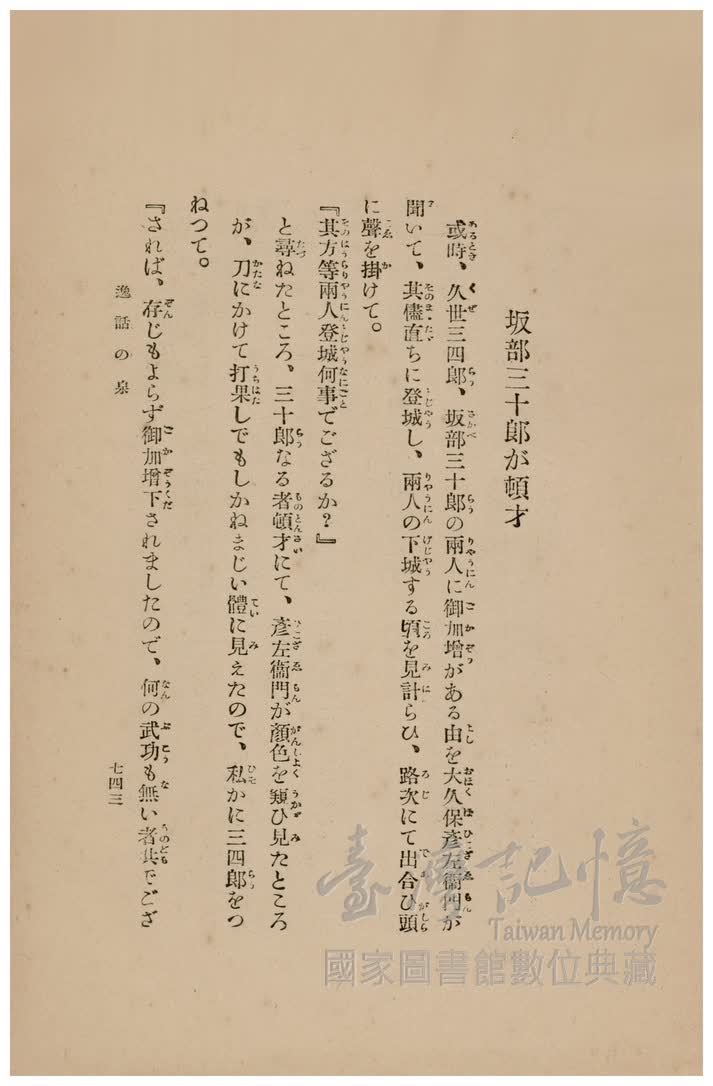 坂部三十郎が頓才
或時、久世三四郎、坂部三十郎の兩人に御加增がある由を大久保彥左衞門が
聞いて、其儘直ちに登城し、兩人の下城する頃を見計らひ、路次にて出合ひ頭
に聲を掛けて。
『其方等兩人登城何事でござるか?』
と尋ねたところ、三十郎なる者頓才にて、彥左衞門が顏色を窺ひ見たところ
が、刀にかけて打果しでもしかねまじい體に見えたので、私かに三四郎をつ
ねつて。
『されば、存じもよらず御加增下されましたので、何の武功も無い者共でござ
逸話の泉
七四三
臺灣記憶
Taiwan Memory
國家圖書館數位典藏